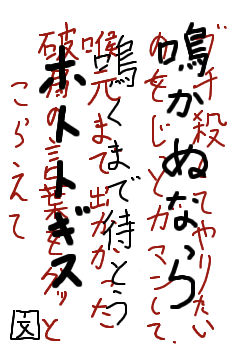 ブチ殺してやりたい
鳴かぬなら
のをじっとガマンして、
鳴くまで待とう
喉元まで出かかった
ホトトギス
破局の言葉をグッと
こらえて